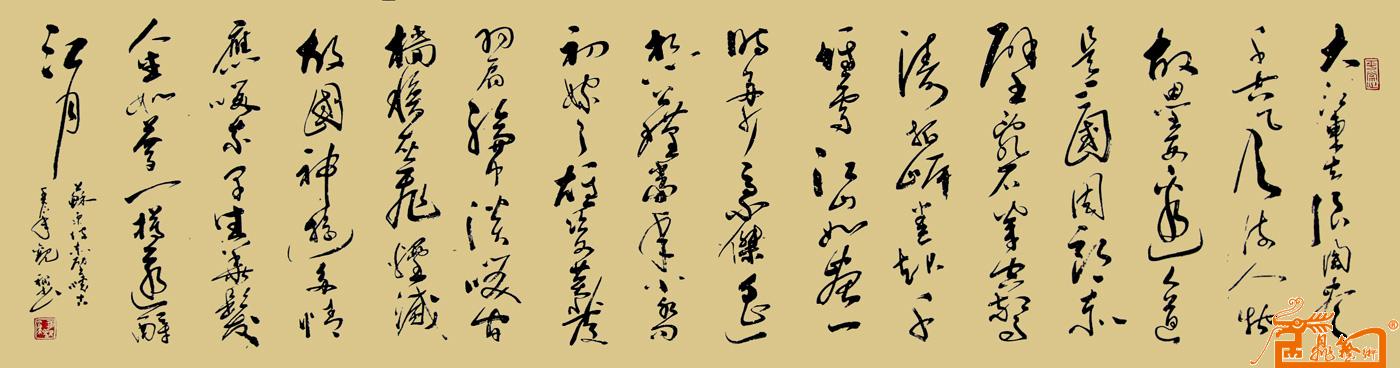 大江東去浪淘盡
千古風流人物
故壘西邊人道
是三國周郎赤
壁亂石穿空驚
濤拍岸卷起千
堆雪江山如畫一
時多少豪傑遙
想公瑾當年小喬
初嫁了雄姿英發
羽扇綸巾談笑間
檣櫓灰飛煙滅
故國神遊多情
應笑我早生華髮
人生如夢一樽還酹
江月
蘇東坡赤壁懷古